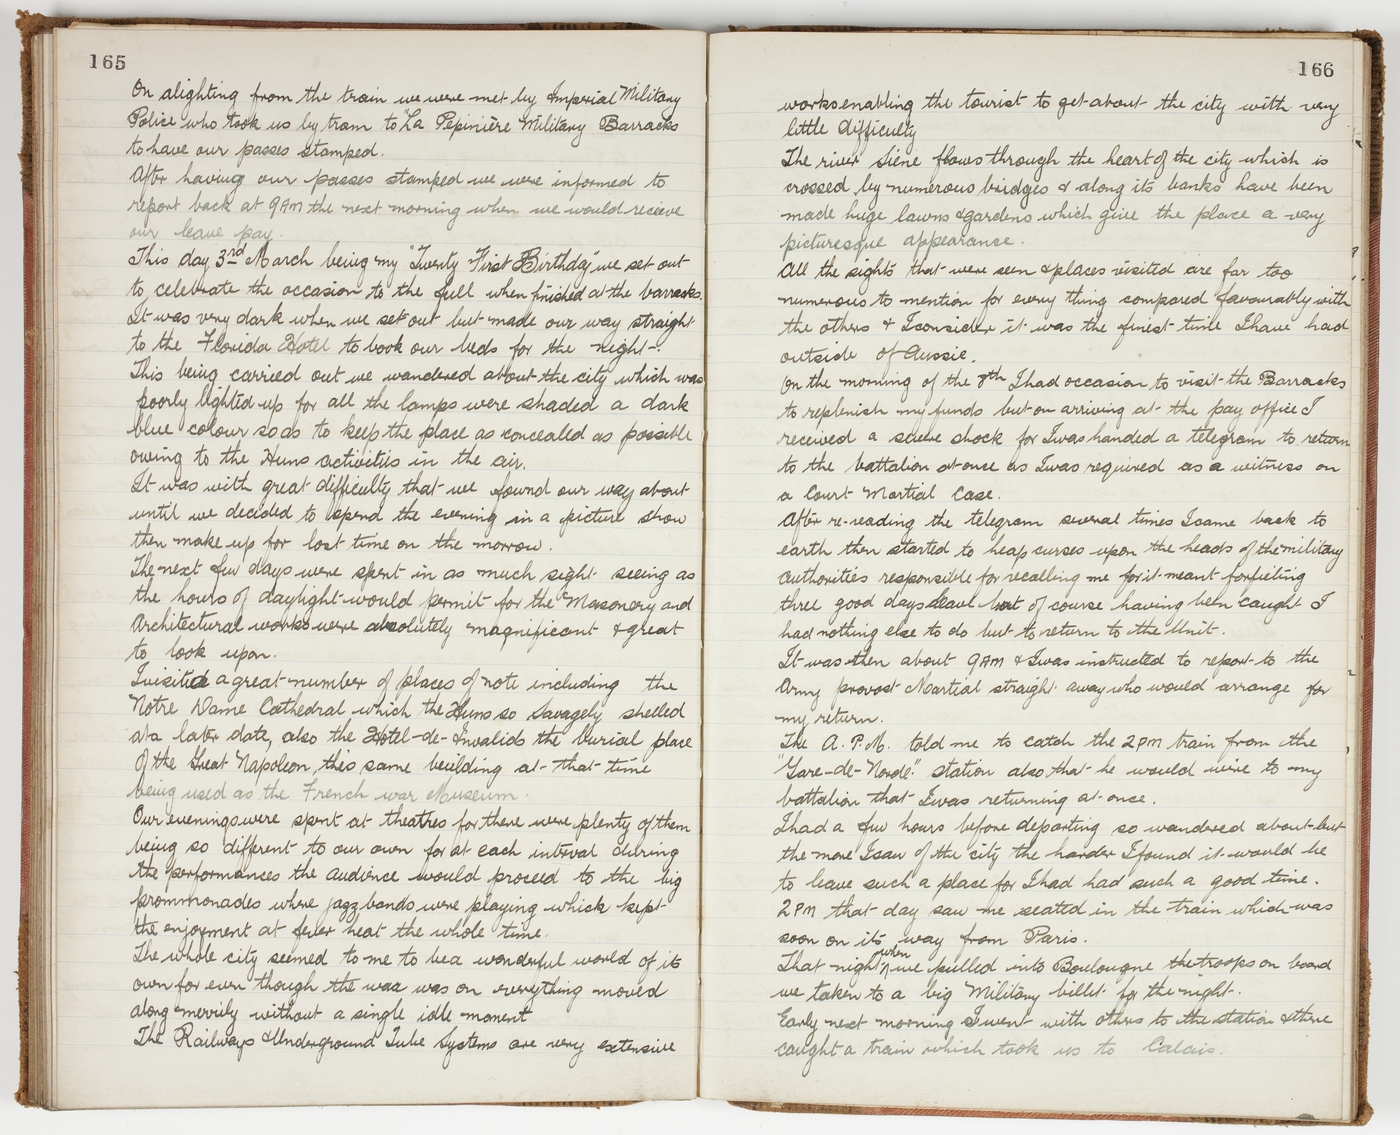 165
On alighting from the train we were met by Imperial Military
Police who took us by tram to "La Pepinière Military Barracks
to have our passes stamped.
After having our passes stamped we were informed to
report back at 9AM the next morning when we would recieve
our leave pay.
This day 3rd March being my "Twenty First Birthday" we set out
to celebrate the occasion to the full when finished at the barracks.
It was very dark when we set out but made our way straight
to the Florida Hotel to book our beds for the night.
This being carried out we wandered about the city which was
poorly lighted up for all the lamps were shaded a dark
blue colour so as to keep the place as concealed as possible
owing to the Huns activities in the air.
It was with great difficulty that we found our way about
until we decided to spend the evening in a picture show
then make up for lost time on the morrow.
The next few days were spent in as much sight seeing as
the hours of daylight would permit for the Masonery and
Architectural works were absolutely magnificent & great
to look upon.
I visited a great number of places of note including the
Notre Dame Cathedral which the Huns so savagely shelled
at a later date, also the Hotel-de-Invalids the burial place
of the Great Napoleon, this same building at that time
being used as the French war Museum.
Our evenings were spent at theatres for there were plenty of them
being so different to our own for at each interval during
the performances the audience would proceed to the big
prommonades where jazz bands were playing which kept
the enjoyment at fever heat the whole time.
The whole city seemed to me to be a wonderful world of its
own for even though the war was on everything moved
along merrily without a single idle moment
The Railways & Underground Tube Systems are very extensive
166
works enabling the tourist to get about the city with very
little difficulty
The river Siene flows through the heart of the city which is
crossed by numerous bridges & along its banks have been
made huge lawns & gardens which give the place a very
picturesque appearance.
All the sights that were seen & places visited are far too
numerous to mention for every thing compared favourably with
the others & I consider it was the finest time I have had
outside of Aussie.
On the morning of the 8th I had occasion to visit the Barracks
to replenish my funds but on arriving at the pay office I
received a severe shock for I was handed a telegram to return
to the battalion at once as I was required as a witness on
a Court Martial Case.
After re-reading the telegram several times I came back to
earth then started to heap curses upon the heads of the military
authorities responsible for recalling me for it meant forfeiting
three good days leave but of course having been caught I
had nothing else to do but to return to the Unit.
It was then about 9AM & I was instructed to report to the
Army Provost Martial straight away who would arrange for
my return.
The A.P.M. told me to catch the 2PM train from the
"Gare-de-Norde" station also that he would wire to my
battalion that I was returning at once.
I had a few hours before departing so wandered about but
the more I saw of the city the harder I found it would be
to leave such a place for I had had such a good time.
2PM that day saw me seated in the train which was
soon on its way from Paris.
That night when we pulled into Boulougne the troops on board
we taken to a big Military billet for the night.
Early next morning I went with others to the station & there
caught a train which took us to Calais.